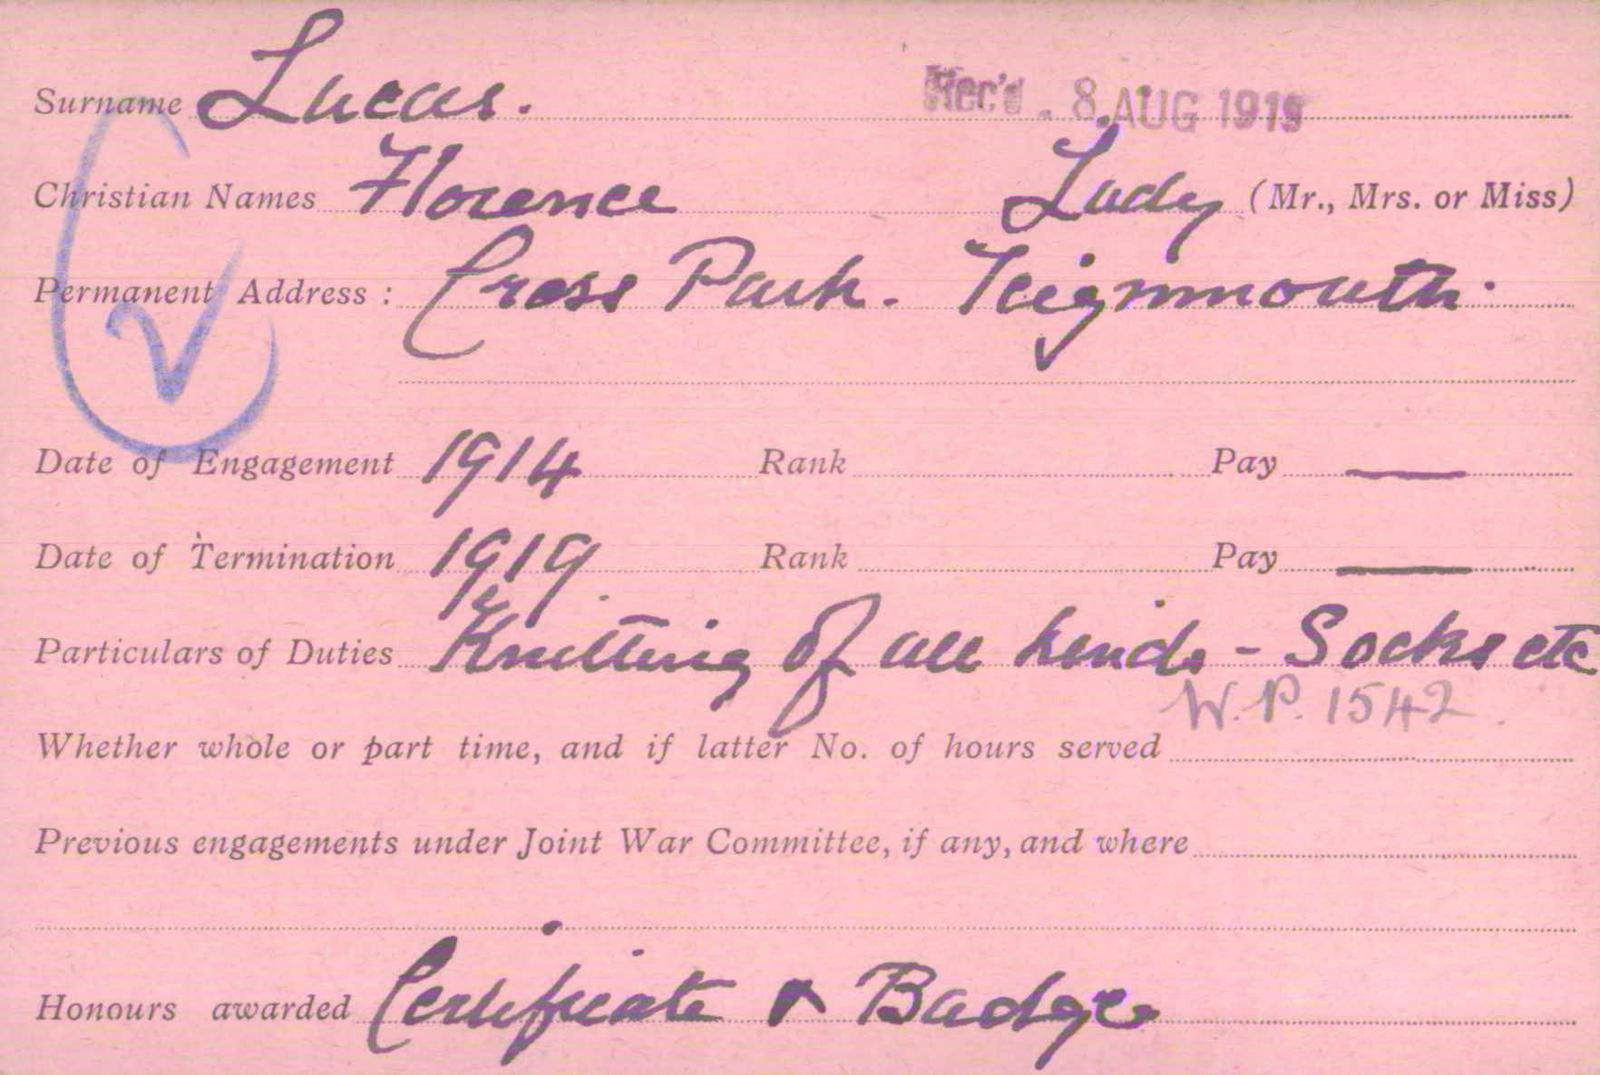 Surname Lucas. Rec'd. 8 AUG 1919
Christian Names Florence Lady (Mr., Mrs. or Miss)
Permanent Address: Cross Park. Teignmouth.
Date of Engagement 1914 Rank Pay —
Date of Termination 1919. Rank Pay —
Particulars of Duties Knitting of all kinds - Socks etc
W.P. 1542.
Whether whole or part time, and if latter No. of hours served
Previous engagements under Joint War Committee, if any, and where
Honours awarded Certificate & Badge